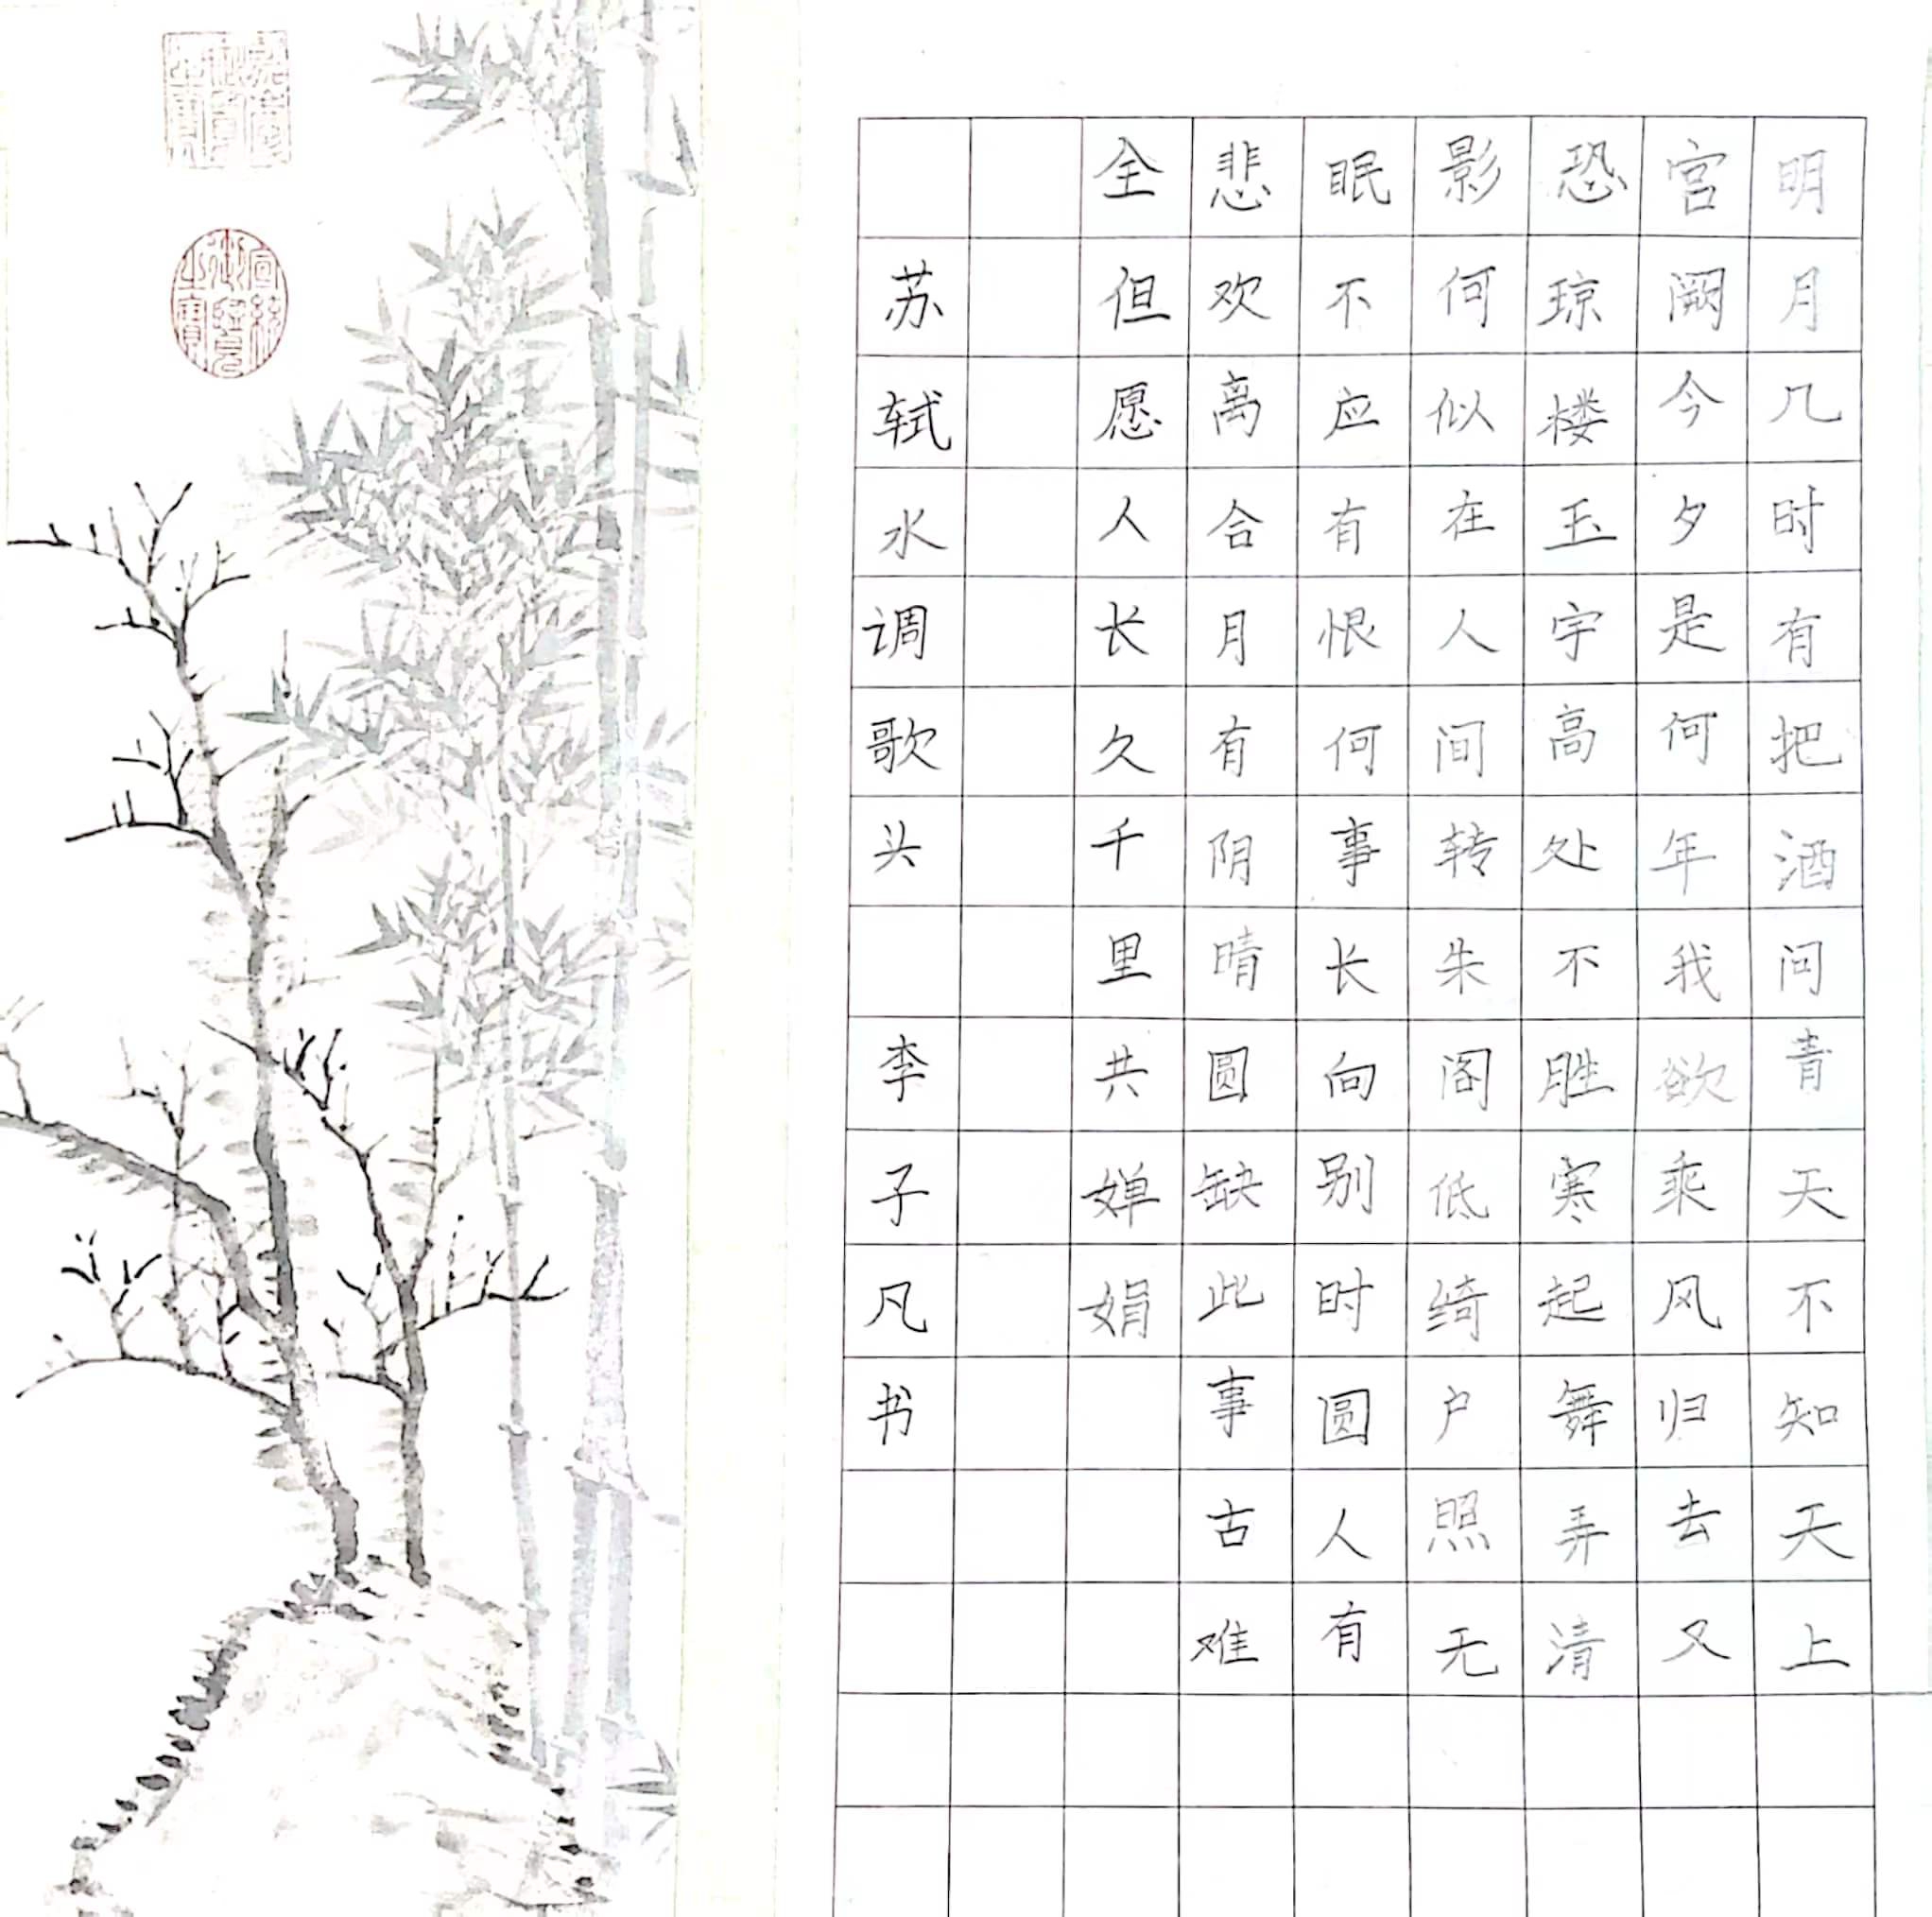 明月几时有把酒问青天不知天上
宫阙今夕是何年我欲乘风归去又
恐琼楼玉宇高处不胜寒起舞弄清
影何似在人间转朱阁低绮户照无
眠不应有恨何事长向别时圆人有
悲欢离合月有阴晴圆缺此事古难
全但愿人长久千里共婵娟
苏轼水调歌头 李子凡书
宣統
御覽
之寶